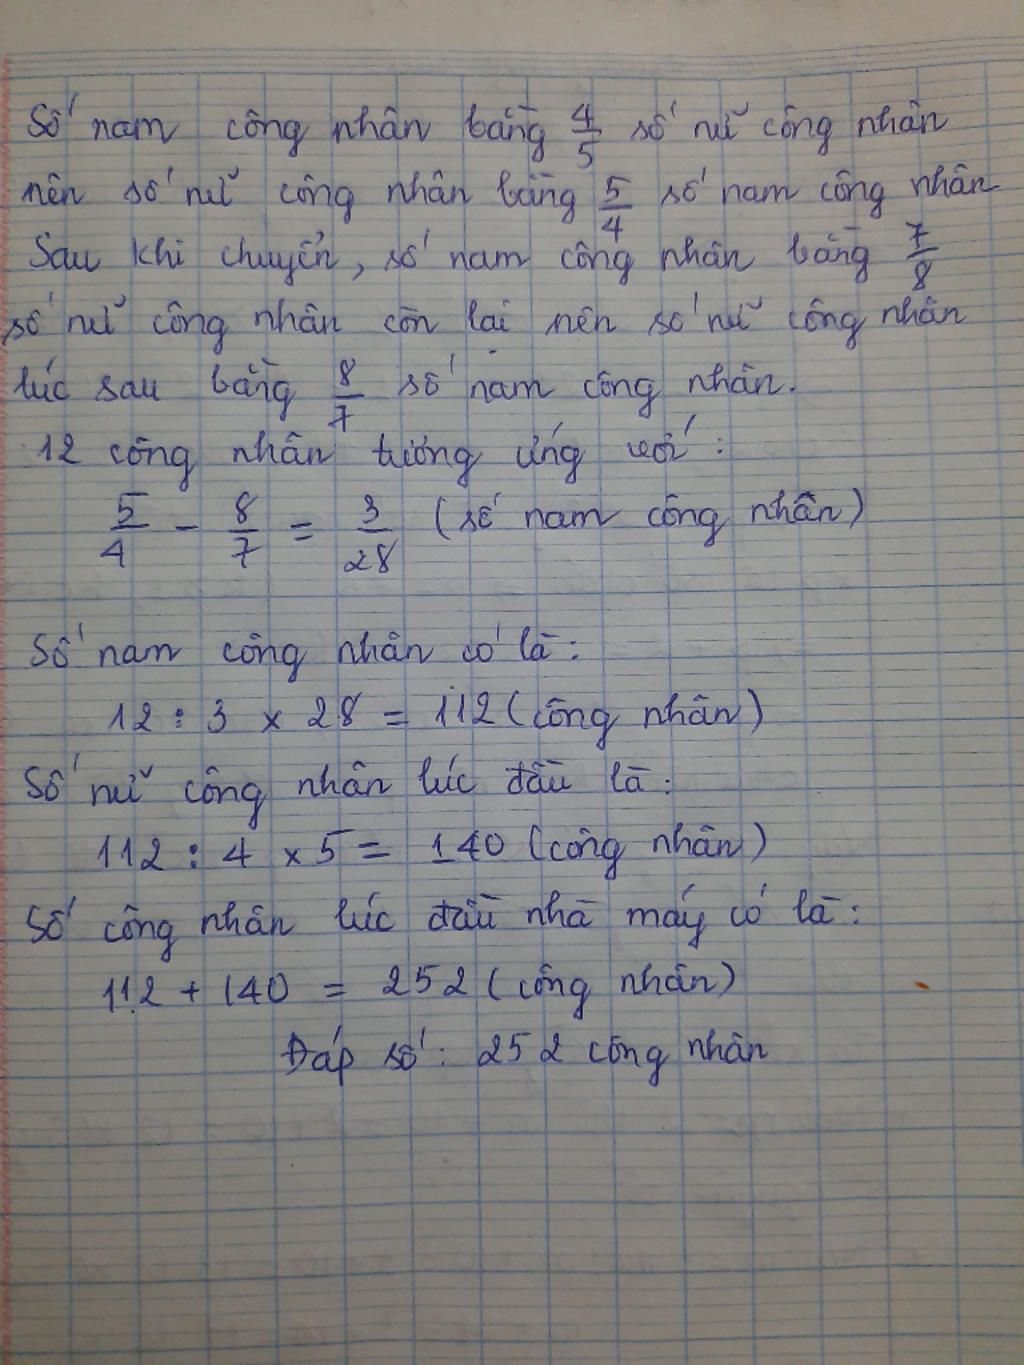 Số nam công nhân bằng 4/5 số nữ công nhân
nên số nữ công nhân bằng 5/4 số nam công nhân
Sau khi chuyển, số nam công nhân bằng 7/8
số nữ công nhân còn lại nên số nữ công nhân
lúc sau bằng 8/7 số nam công nhân.
12 công nhân tương ứng với:
5/4 - 8/7 = 3/28 (số nam công nhân)
Số nam công nhân có là:
12 : 3 x 28 = 112 (công nhân)
Số nữ công nhân lúc đầu là:
112 : 4 x 5 = 140 (công nhân)
Số công nhân lúc đầu nhà máy có là:
112 + 140 = 252 (công nhân)
Đáp số: 252 công nhân